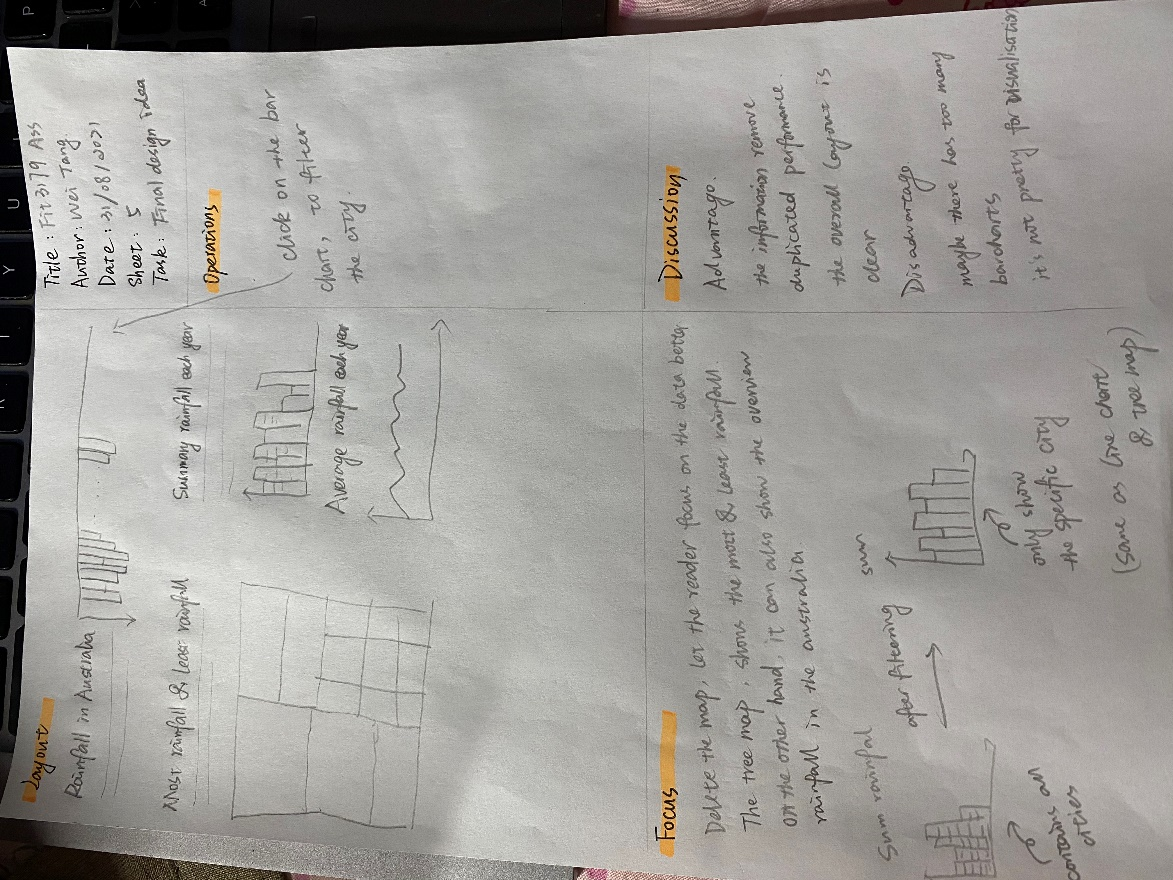 Layout
Rainfall in Australia
Most rainfall & least rainfall
Summary rainfall each year
Average rainfall each year
Title: Fit3179 Ass
Author: Wei Tang
Date: 31/08/2021
Sheet: 5
Task: Final design idea
Operations
click on the bar
chart, to filter
the city.
Focus
Delete the map, let the reader focus on the data better
The tree map, shows the most & least rainfall.
on the other hand, it can also show the overview
rainfall in the australia.
Sum rainfal
after filtering
sum
contains all
cities
only show
the specific city
(same as line chart
& tree map)
Discussion
Advantage.
the information remove
duplicated performance.
the overall layout is
clear
Disadvantage
maybe there has too many
barcharts
it's not pretty for visualisation